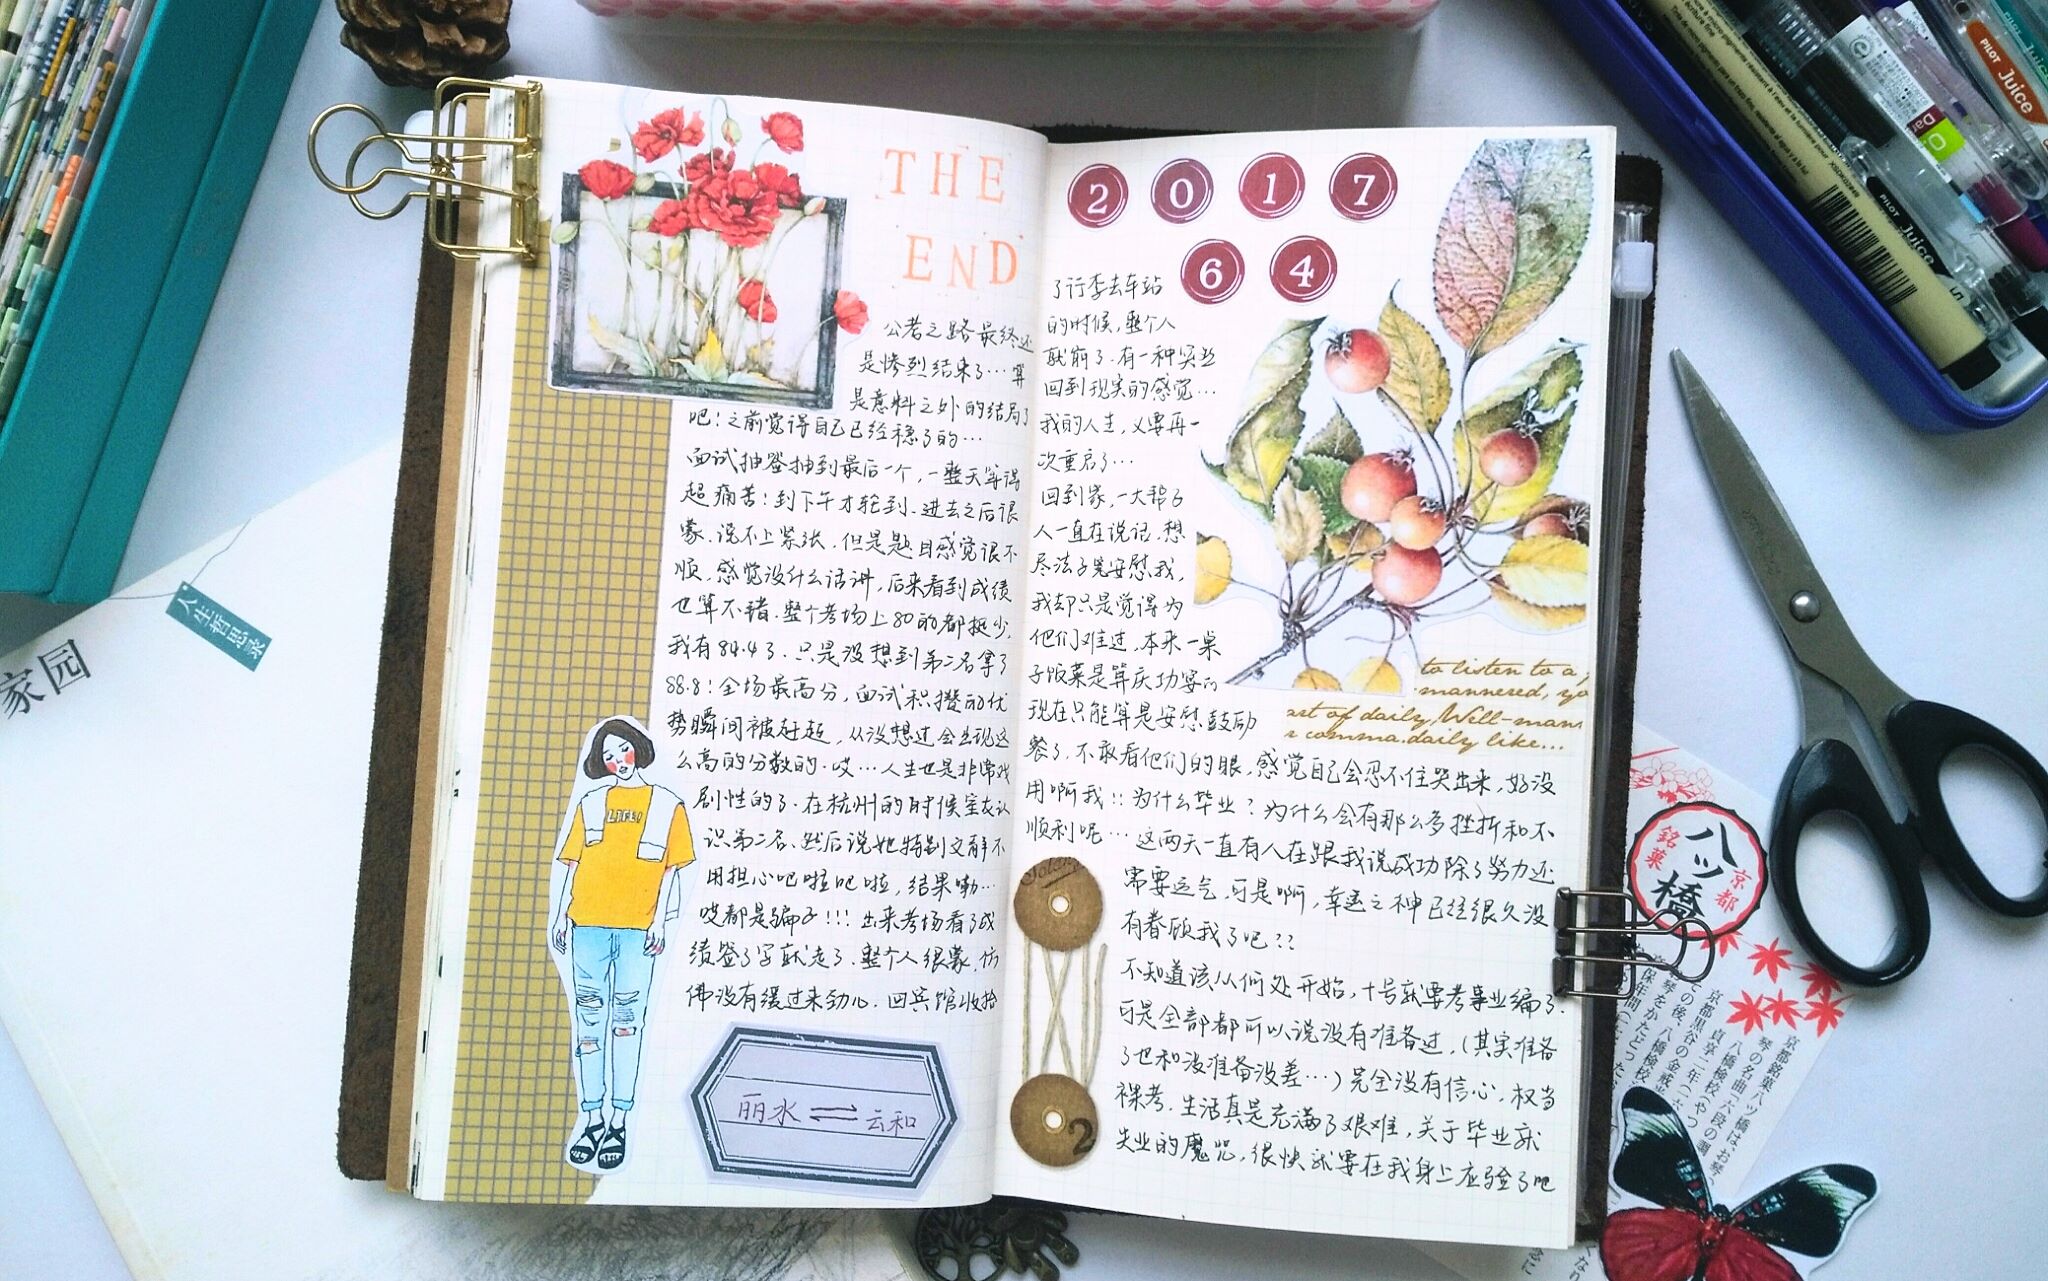 THE
END
公考之路最终还
是惨烈结束了…算
是意料之外的结局了
吧!之前觉得自己已经稳了的…
面试抽签抽到最后一个,一整天等得
超痛苦!到下午才轮到.进去之后很
蒙.说不上紧张.但是题目感觉很不
顺,感觉没什么话讲,后来看到成绩
也算不错.整个考场上80的都挺少,
我有84.4了.只是没想到第二名拿了
88.8!全场最高分,面试积攒的优
势瞬间被赶超,从没想过会出现这
么高的分数的.哎…人生也是非常戏
剧性的了.在杭州的时候室友认
识第二名、然后说她特别文静不
用担心吧啦吧啦,结果嘞…
哎都是骗子!!!出来考场看了成
绩签了字就走了.整个人很蒙,仿
佛没有缓过来劲儿.回宾馆收拾
LIFE!
丽水⇌云和
2017
64
了行李去车站
的时候,整个人
就崩了.有一种突然
回到现实的感觉…
我的人生,又要再一
次重启了…
回到家,一大帮子
人一直在说话.想
尽法子来安慰我,
我却只是觉得为
他们难过,本来一桌
子饭菜是算庆功宴的
现在只能算是安慰鼓励
餐了.不敢看他们的眼,感觉自己会忍不住哭出来,好没
用啊我!!为什么毕业?为什么会有那么多挫折和不
顺利呢…这两天一直有人在跟我说成功除了努力还
需要运气.可是啊,幸运之神已经很久没
有眷顾我了吧??
不知道该从何处开始,十号就要考事业编了.
可是全部都可以说没有准备过,(其实准备
了也和没准备没差…)完全没有信心,权当
裸考.生活真是充满了艰难,关于毕业就
失业的魔咒,很快就要在我身上应验了吧
to listen to a
mannered, yo
art of daily, Well-man
comma.daily like...
2
家园
人生哲思录
PILOT Juice
Juice
京都
八ッ橋
銘菓
京都銘菓八ッ橋は、お琴
琴の名曲「六段の調